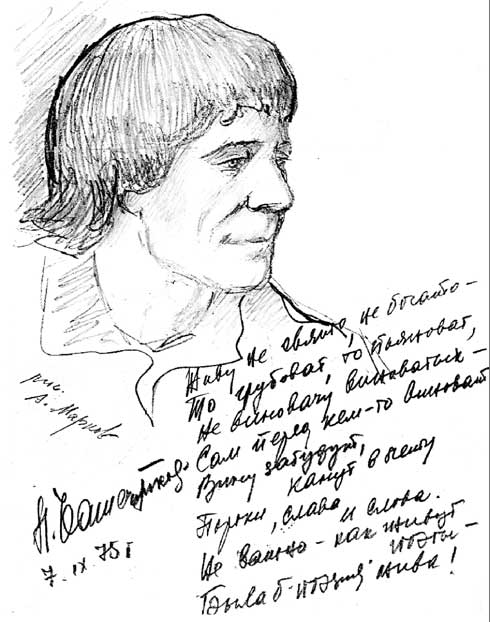 Живу не свято, не богато –
То грубоват, то пьяноват,
Не виновачу виноватых –
Сам перед кем-то виноват.
Вину забудут,
канут в лету
Пороки, слава и слова.
Не важно – как живут
поэты –
Была б поэзия жива!
рис.
А. Марков
7.IX 75 г